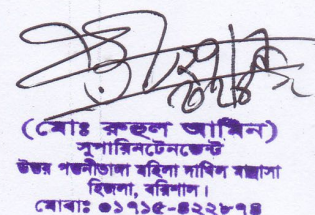 (মোঃ রুহুল আমিন)
সুপারিনটেনডেন্ট
উত্তর পত্তনীভাঙ্গা মহিলা দাখিল মাদ্রাসা
হিজলা, বরিশাল।
মোবাঃ ০১৭১৫-৪২২৮৭৪